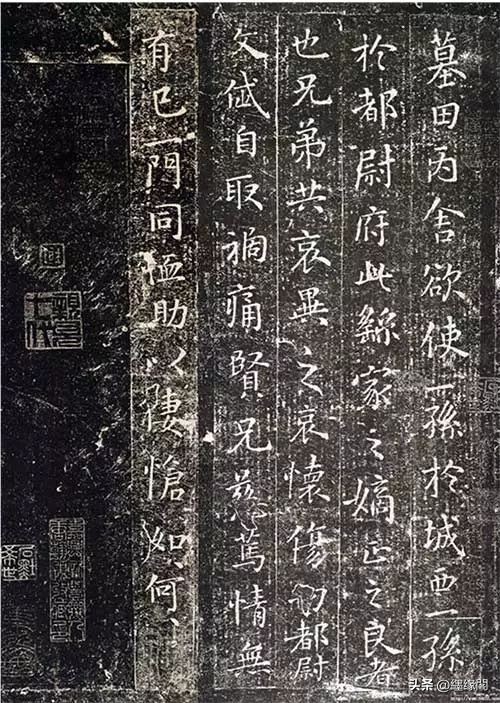 墓田丙舍欲使一孫於城西一孫
於都尉府此繇家之嫡正之良者
也兄弟共哀異之哀懷傷切都尉
文岱自取禍痛賢兄慈篤情無
有已一門同恤助以悽愴如、何、
头条